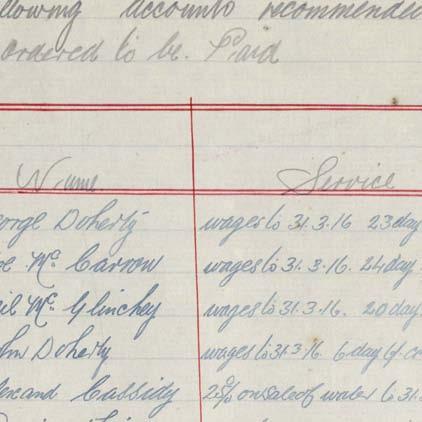 llowing accounts recommended
ordered to be. Paid
Name Service
orge Doherty wages to 31.3.16 23 day
Mc Carron wages to 31.3.16. 24 day
Mc Glinchey wages to 31.3.16. 20 day
hn Doherty wages to 31.3.16. 6 day
Cassidy on Sale of water to 31.